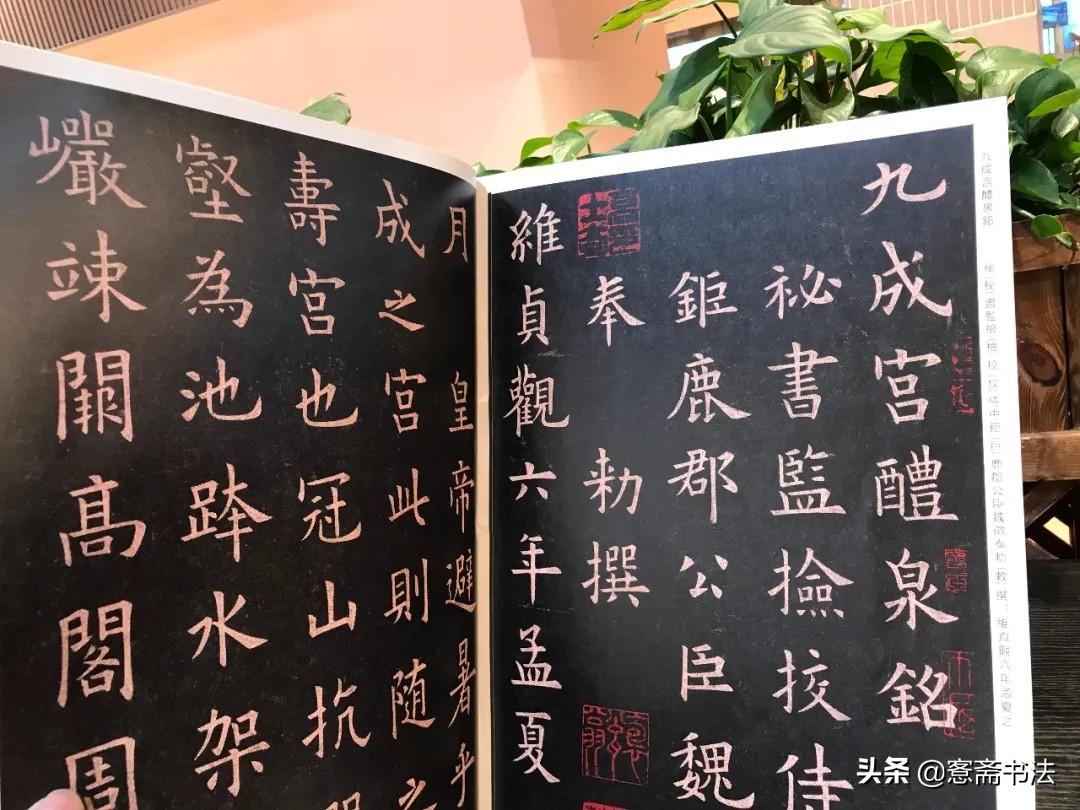 九成宮醴泉銘
祕書監撿挍侍
鉅鹿郡公臣魏
奉 勑撰
維貞觀六年孟夏
月 皇帝避暑乎
成之宮此則随之
壽宮也冠山抗
壑為池跨水架
巗竦闕高閣周
九成宮醴泉銘
書監撿[檢]挍[校]侍中鉅[巨]鹿郡公臣魏徵奉勑[敕]撰。維貞觀六年孟夏之
头条 @愙斋书法